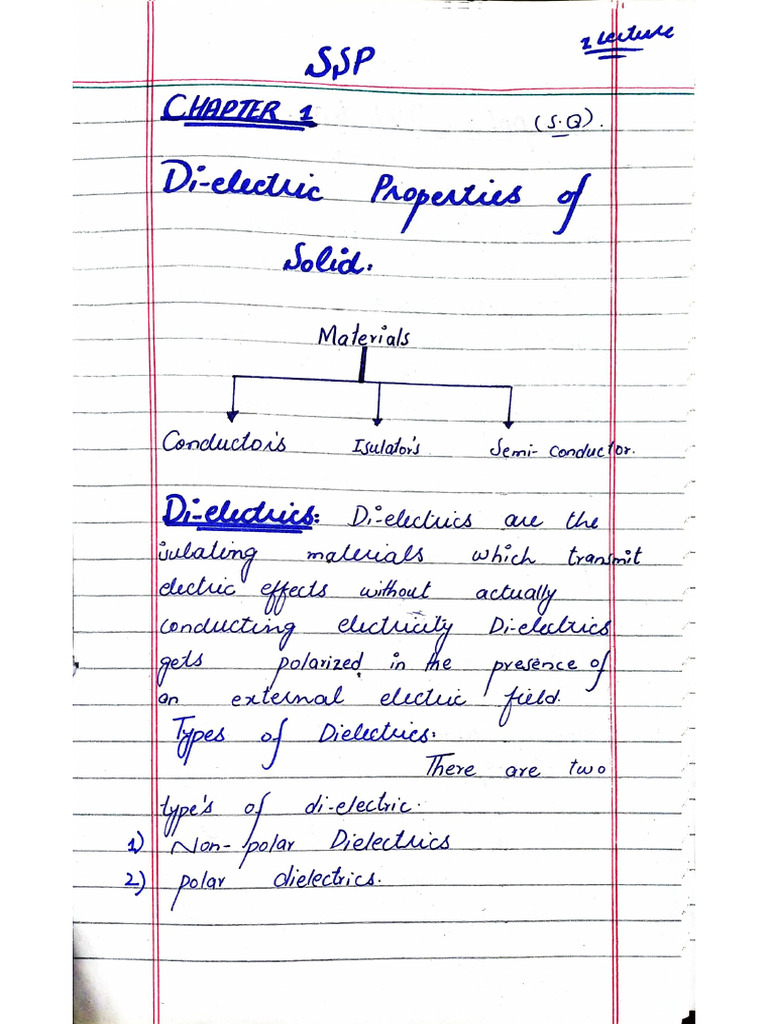 1 Lecture
SSP
CHAPTER 1
(S.Q).
Di-electric Properties of
Solid.
Materials
Conductors Isulator's Semi-conductor.
Di-electrics: Di-electrics are the
isulating materials which transmit
electric effects without actually
conducting electricity Di-electrics
gets polarized in the presence of
an external electric field.
Types of Dielectrics:
There are two
type's of di-electric.
1) Non-polar Dielectrics
2) polar dielectrics.